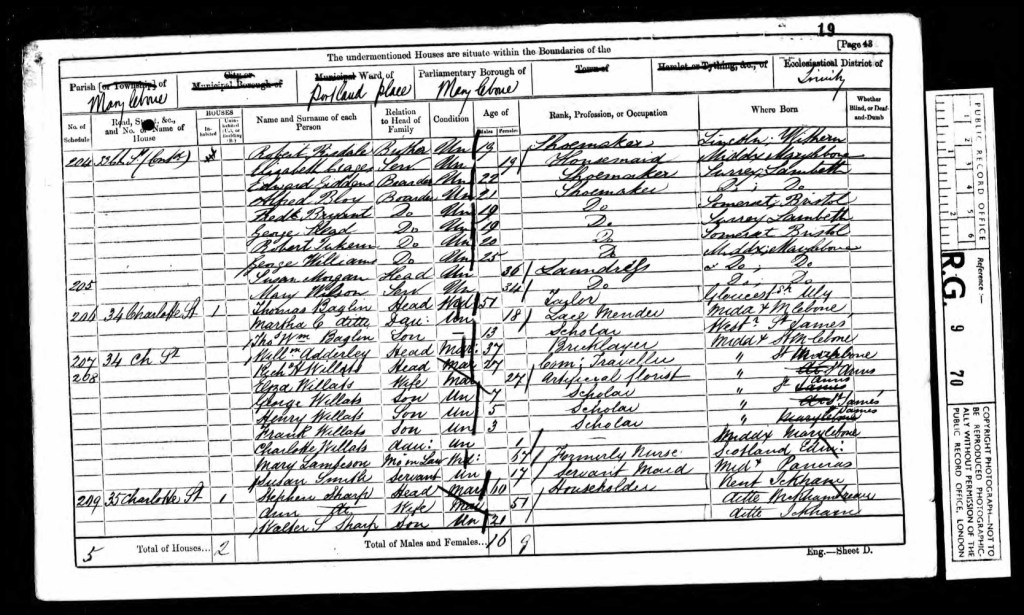 19
[Page 43
The undermentioned Houses are situate within the Boundaries of the
Parish [or Township] of
Marylebone
City or
Municipal Borough of
Municipal Ward of
Portland Place
Parliamentary Borough of
Marylebone
Town of
Hamlet or Tything, &c., of
Ecclesiastical District of
Trinity
No. of Schedule
Road, Street, &c., and No. or Name of House
HOUSES
Inhabited
Name and Surname of each Person
Relation to Head of Family
Condition
Age of
Males
Females
Rank, Profession, or Occupation
Where Born
Whether Blind, or Deaf-and-Dumb
204 33 Ch St (Contd) Robert Un 19 Shoemaker Lincoln;
Elizabeth Serv Un 19 Housemaid Middx Marylebone
Edward Boarder Un 22 Shoemaker Surrey Lambeth
Alfred Bloy Boarder Un 21 Shoemaker Do; Do
Fredk Bryant Do Un 19 Do Somerset Bristol
George Head Do Un 19 Do Surrey Lambeth
Robert Do Un 20 Do Somerset Bristol
George Williams Do Un 25 Do Middx; Marylebone
205 Susan Morgan Head Un 36 Laundress Do; Do
Mary Serv Un 34 Do Do; Do
206 34 Charlotte St 1 Thomas Baglin Head Wid 51 Taylor Gloucest sh Uly
Martha C ditto Dau: Un 18 Lace Mender Midd & M. lebone
Thos Wm Baglin Son 13 Scholar Westr St James
207 34 Ch St Willm Adderley Head Mar: 37 Bricklayer Midd & St M. lebone
208 Richd H Willats Head Mar 27 Com; Traveller " St Marylebone
Eliza Willats Wife Mar 27 Artificial florist " St Anns
George Willats Son Un 7 Scholar " St Anns
Henry Willats Son Un 5 Scholar " St James
Frank Willats Son Un 3 Scholar " Marylebone
Charlotte Willats dau: Un 1 — Middx Marylebone
Mary Lampson Mo in Law Wid: 67 Formerly Nurse Scotland Edin:
Susan Smith Servant Un 17 Servant Maid Midx Pancras
209 35 Charlotte St 1 Stephen Sharp Head Mar 60 Householder Kent Ickham
Ann do Wife Mar 51 ditto
Walter S Sharp Son Un 21 ditto Ickham
5 Total of Houses... 2 Total of Males and Females... 16 9
Eng.—Sheet D.
PUBLIC RECORD OFFICE
1 2 3 4 5 6
Reference :—
R.G. 9 70
COPYRIGHT PHOTOGRAPH—NOT TO
BE REPRODUCED PHOTOGRAPHIC-
ALLY WITHOUT PERMISSION OF THE
PUBLIC RECORD OFFICE, LONDON